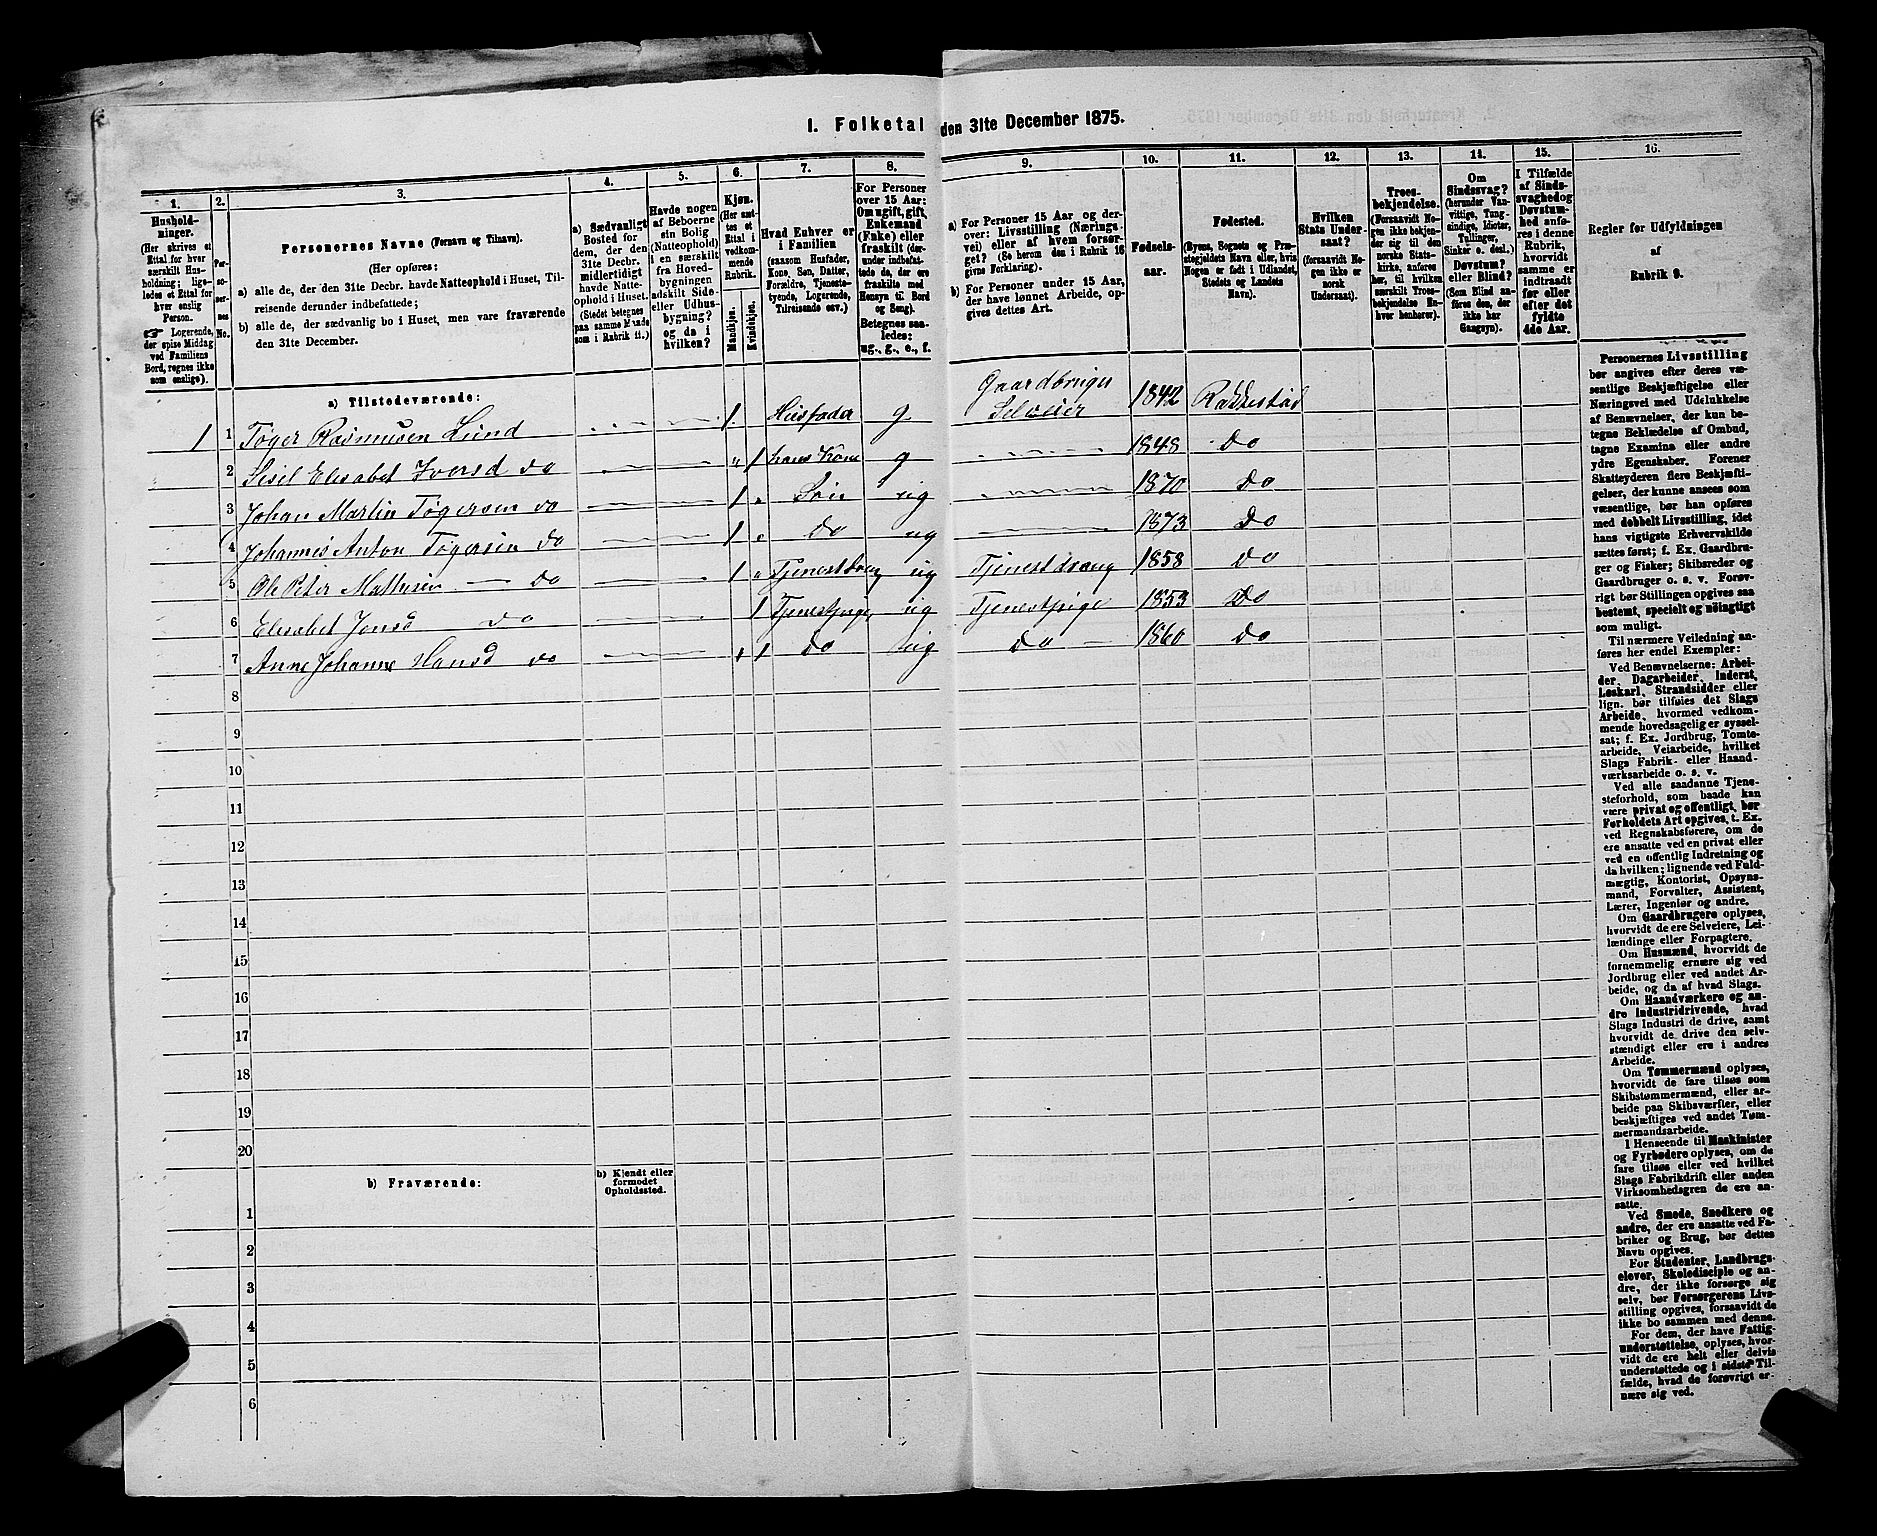 I. Folketal den 31te December 1875.
1. 2. 3. 4. 5. 6. 7. 8. 9. 10. 11. 12. 13. 14. 15. 16.
Hushold-
ninger.
(Her skrives et
Ettal for hver
særskilt Hus-
holdning; lige-
ledes et Ettal for
hver enslig
Person.
☞ Logerende,
der spise Middag
ved Familiens
Bord, regnes ikke
som enslige).
Per-
so-
ner-
nes
No.
Personernes Navne (Fornavn og Tilnavn).
(Her opføres:
a) alle de, der den 31te Decbr. havde Natteophold i Huset, Til-
reisende derunder indbefattede;
b) alle de, der sædvanlig bo i Huset, men vare fraværende
den 31te December.
a) Sædvanligt
Bosted for
dem, der den
31te Decbr.
midlertidigt
havde Natte-
ophold i Huset.
(Stedet betegnes
paa samme Maade
som i Rubrik 11.)
Havde nogen
af Beboerne
sin Bolig
(Natteophold)
i en særskilt
fra Hoved-
bygningen
adskilt Side-
eller Udhus-
bygning?
og da i
hvilken?
Kjøn.
(Her sæt-
tes et
Ettal i
vedkom-
mende
Rubrik.
Mandkjøn.
Kvindekjøn.
Hvad Enhver er
i Familien
(saasom Husfader,
Kone, Søn, Datter,
Forældre, Tjeneste-
tyende, Logerende,
Tilreisende osv.)
For Personer
over 15 Aar:
Om ugift, gift,
Enkemand
(Enke) eller
fraskilt (der-
under indbefat-
tede de, der ere
fraskilte med
Hensyn til Bord
og Seng).
Betegnes saa-
ledes:
ug., g., e., f.
a) For Personer 15 Aar og der-
over: Livsstilling (Nærings-
vei) eller af hvem forsør-
get? (Se herom den i Rubrik 16
givne Forklaring).
b) For Personer under 15 Aar,
der have lønnet Arbeide, op-
gives dettes Art.
Fødsels-
aar.
Fødested.
(Byens, Sognets og Præ-
stegjeldets Navn eller, hvis
Nogen er født i Udlandet,
Stedets og Landets
Navn).
Hvilken
Stats Under-
saat?
(forsaavidt No-
gen ikke er
norsk
Undersaat).
Troes-
bekjendelse.
(Forsaavidt No-
gen ikke bekjen-
der sig til den
norske Stats-
kirke, anføres
her, til hvilken
særskilt Troes-
bekjendelse En-
hver henhører).
Om
Sindssvag?
(herunder Van-
vittige, Tung-
sindige, Idioter,
Tullinger,
Sinker o. desl.)
Døvstum?
eller Blind?
(Som Blind an-
føres den, der
ikke har
Gangsyn).
I Tilfælde
af Sinds-
svaghed og
Døvstum-
hed anfø-
res i denne
Rubrik,
hvorvidt
samme er
indtraadt
før eller
efter det
fyldte
4de Aar.
Regler for Udfyldningen
af
Rubrik 9.
a) Tilstedeværende:
1 1 Tøger Rasmusen Lund 1. Husfader g Gaardbruger Selveier 1842 Rakkestad
2 Sisil Elisabet Iversd do " 1 hans Kone g 1848 Do
3 Johan Martin Tøgersen do 1 " Søn ug 1870 Do
4 Johannes Anton Tøgersen do 1 " Do ug 1873 Do
5 Ole Peter Mathisen — do 1 " Tjenestdreng ug Tjenestdreng 1858 Do
6 Elisabet Jonsd do 1 Tjenestpige ug Tjenestpige 1853 Do
7 Anne Johanne Hansd do " 1 Do ug Do — 1860 Do
8
9
10
11
12
13
14
15
16
17
18
19
20
b) Fraværende:
b) Kjendt eller
formodet
Opholdssted.
1
2
3
4
5
6
Personernes Livsstilling
bør angives efter deres væ-
sentlige Beskjæftigelse eller
Næringsvei med Udelukkelse
af Benævnelser, der kun be-
tegne Beklædelse af Ombud,
tagne Examina eller andre
ydre Egenskaber. Forener
Skatteyderen flere Beskjæfti-
gelser, der kunne ansees som
væsentlige, bør han opføres
med dobbelt Livsstilling, idet
hans vigtigste Erhvervskilde
sættes først; f. Ex. Gaardbru-
ger og Fisker; Skibsreder og
Gaardbruger o. s. v. Forøv-
rigt bør Stillingen opgives saa
bestemt, specielt og nöiagtigt
som muligt.
Til nærmere Veiledning an-
føres her endel Exempler:
Ved Benævnelserne: Arbei-
der, Dagarbeider, Inderst,
Løskarl, Strandsidder eller
lign. bør tilføies det Slags
Arbeide, hvormed vedkom-
mende hovedsagelig er syssel-
sat; f. Ex. Jordbrug, Tomte-
arbeide, Veiarbeide, hvilket
Slags Fabrik- eller Haand-
værksarbeide o. s. v.
Ved alle saadanne Tjene-
steforhold, som baade kan
være privat og offentligt, bør
Forholdets Art opgives, t. Ex.
ved Regnskabsførere, om de
ere ansatte ved en privat eller
ved en offentlig Indretning og
da hvilken; lignende ved Fuld-
mægtig, Kontorist, Opsyns-
mand, Forvalter, Assistent,
Lærer, Ingeniør og andre.
Om Gaardbrugere oplyses,
hvorvidt de ere Selveiere, Lei-
lændinge eller Forpagtere.
Om Husmænd, hvorvidt de
fornemmelig ernære sig ved
Jordbrug eller ved andet Ar-
beide, og da af hvad Slags.
Om Haandværkere og an-
dre Industridrivende, hvad
Slags Industri de drive, samt
hvorvidt de drive den selv-
stændigt eller ere i andres
Arbeide.
Om Tømmermænd oplyses,
hvorvidt de fare tilsøs som
Skibstømmermænd, eller ar-
beide paa Skibsværfter, eller
beskjæftiges ved andet Tøm-
mermandsarbeide.
I Henseende til Maskinister
og Fyrbødere oplyses, om de
fare tilsøs eller ved hvilket
Slags Fabrikdrift eller anden
Virksomhedsgren de ere an-
satte.
Ved Smede, Snedkere og
andre, der ere ansatte ved Fa-
briker og Brug, bør dettes
Navn opgives.
For Studenter, Landbrugs-
elever, Skoledisciple og an-
dre, der ikke forsørge sig
selv, bør Forsørgerens Livs-
stilling opgives, forsaavidt de
ikke bo sammen med denne.
For dem, der have Fattig-
understøttelse, oplyses, hvor-
vidt de ere helt eller delvis
understøttede og i sidste Til-
fælde, hvad de forøvrigt er-
nære sig ved.